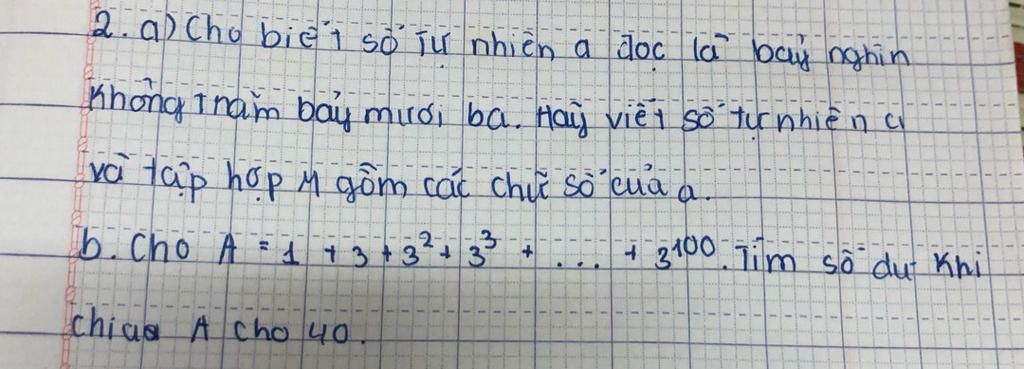 2. a) Cho biết số tự nhiên a đọc là bảy nghìn
không trăm bảy mươi ba. Hãy viết số tự nhiên a
và tập hợp M gồm các chữ số của a.
b. Cho A = 1 + 3 + 3² + 3³ + ... + 3¹⁰⁰. Tìm số dư khi
chia A cho 40.